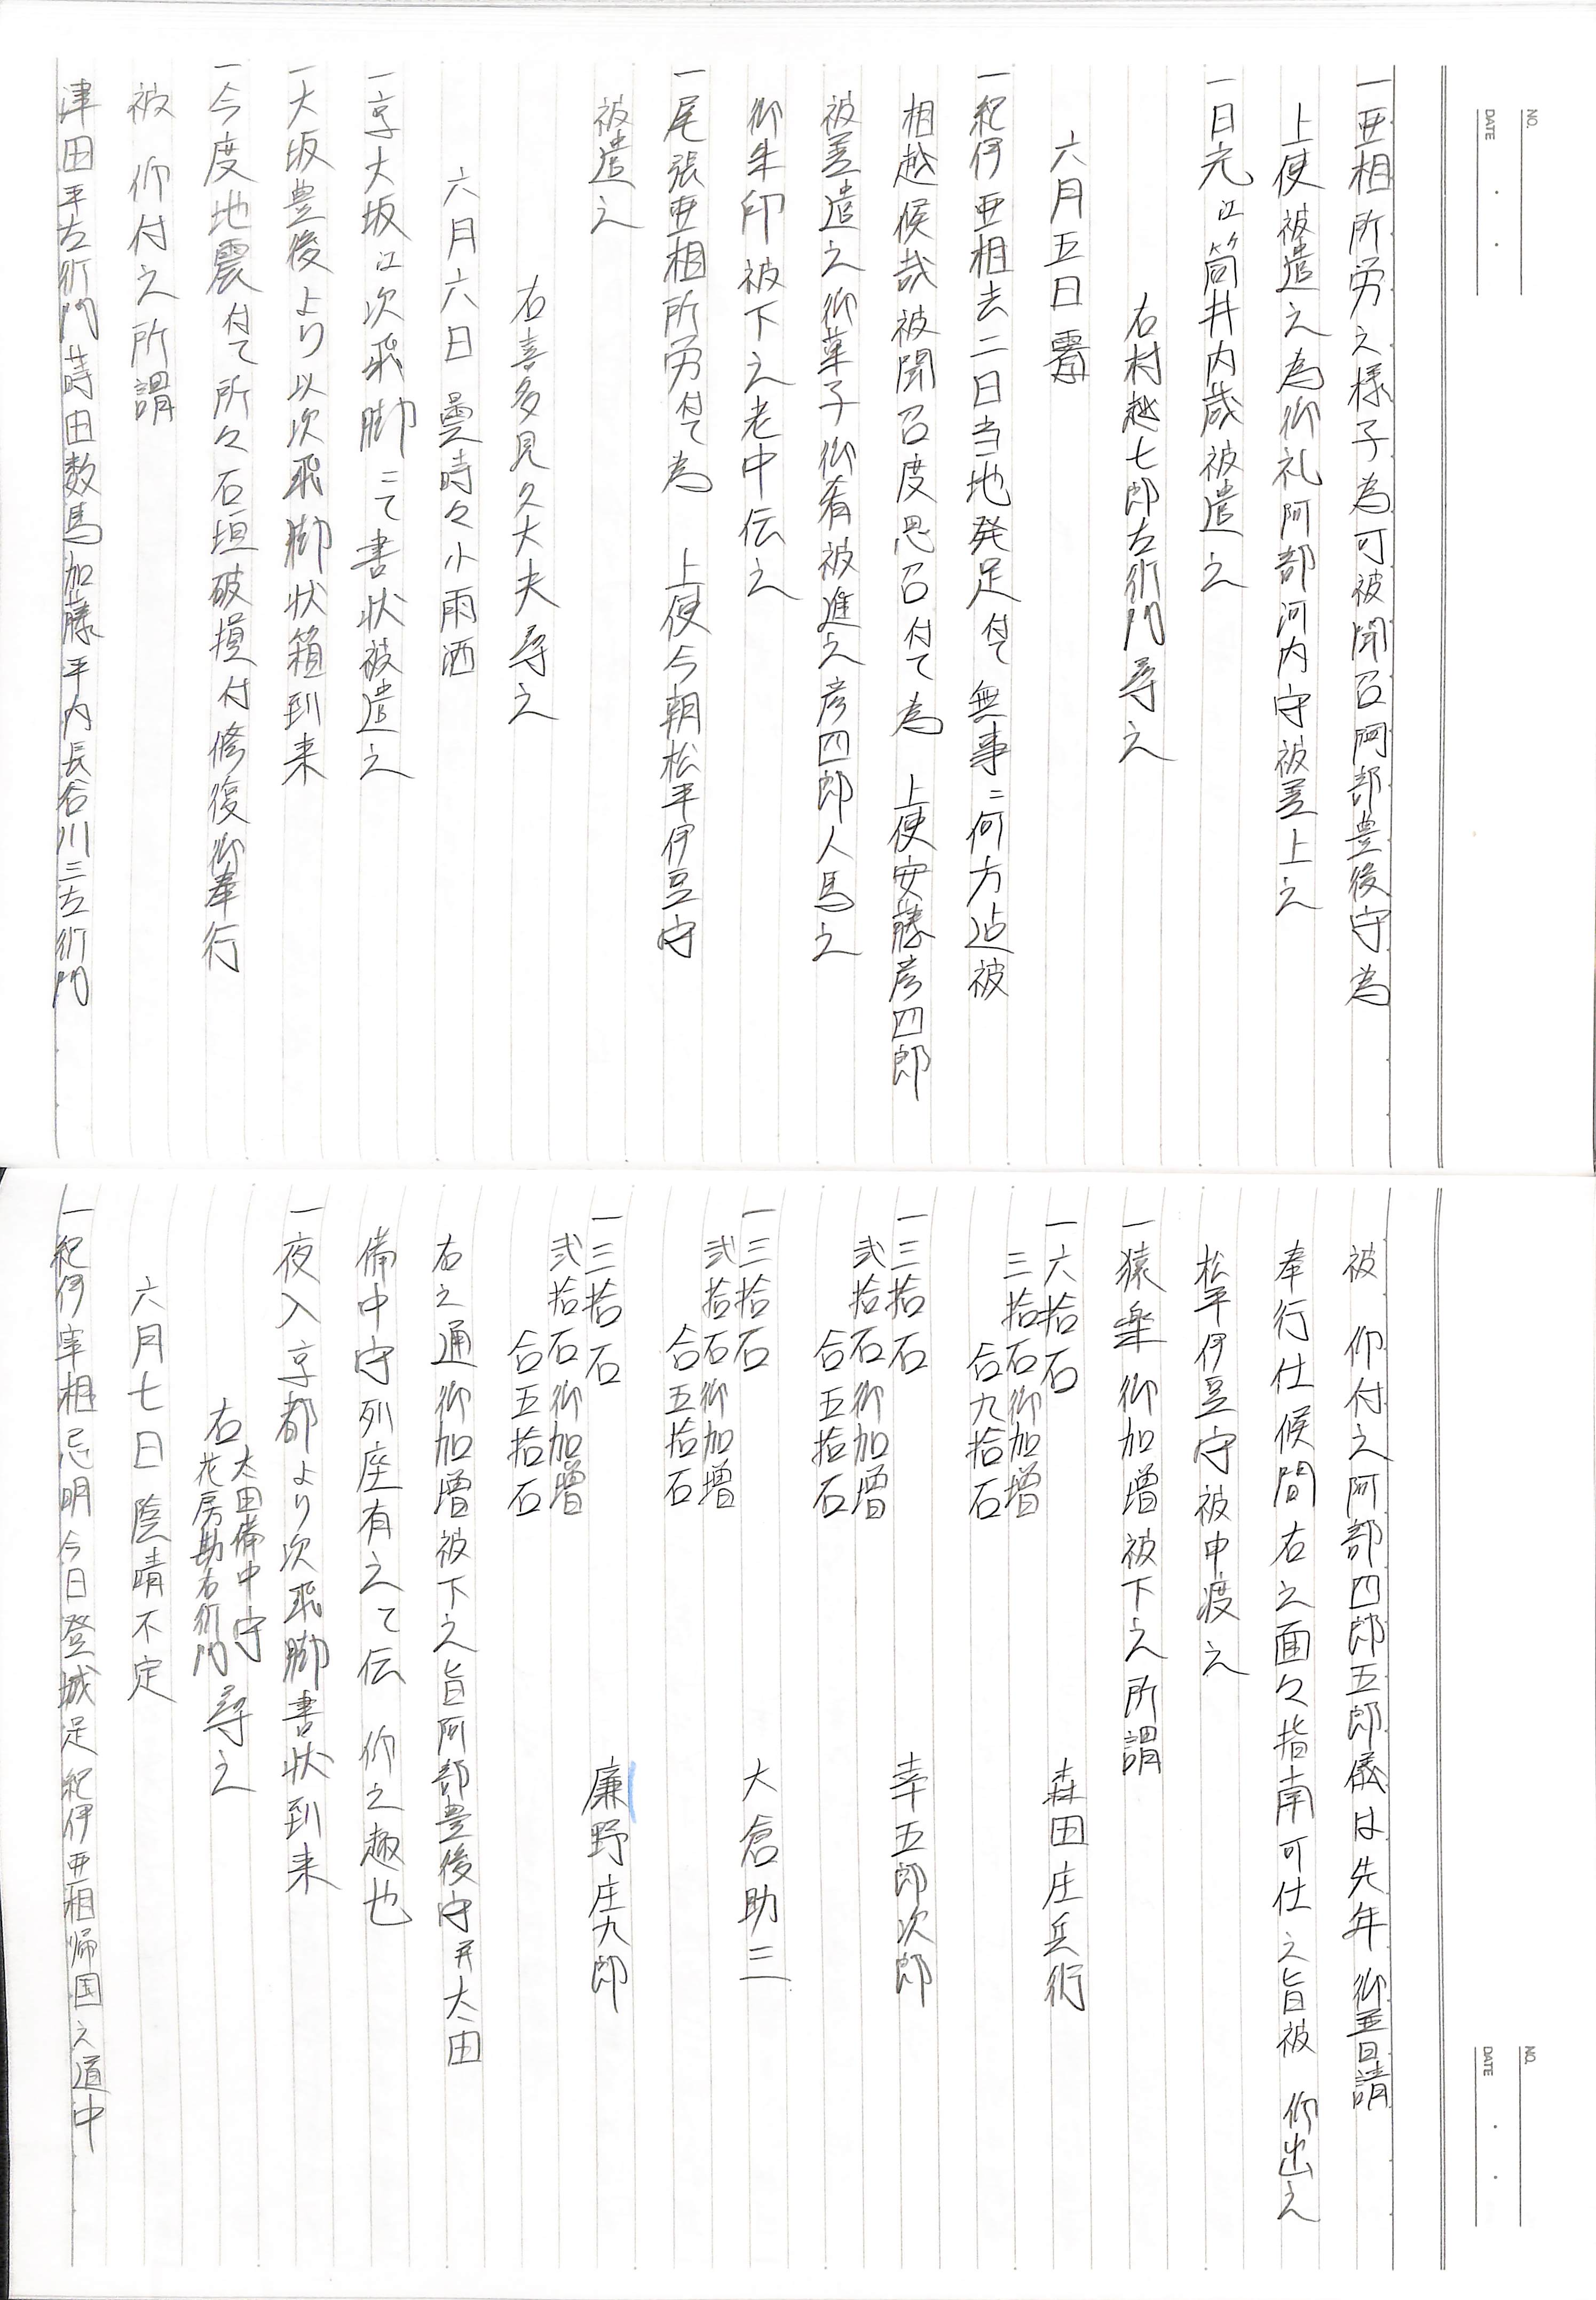 NO.
DATE
一亜相所労之様子為可被聞召阿部豊後守為
上使被遣之為御礼阿部河内守被差上之
一日光江筒井内蔵被遣之
右村越七郎左衛門尋之
六月五日霽
一紀伊亜相去二日当地発足付て無事ニ何方迠被
相越候哉被聞召度思召付て為　上使安藤彦四郎
被差遣之御菓子御肴被進之彦四郎人馬之
御朱印被下之老中伝之
一尾張亜相所労付て為　上使今朝松平伊豆守
被遣之
右喜多見久大夫尋之
六月六日曇時々小雨洒
一京大坂江次飛脚ニて書状被遣之
一大坂豊後より以次飛脚状箱到来
一今度地震付て所々石垣破損付修復御奉行
被　仰付之所謂
津田平左衛門蒔田数馬加藤平内長谷川三左衛門
NO.
DATE
被　仰付之阿部四郎五郎儀は先年御普請
奉行仕候間右之面々指南可仕之旨被　仰出之
松平伊豆守被申渡之
一猿楽御加増被下之所謂
一六拾石
三拾石御加増　森田庄兵衛
合九拾石
一三拾石
弐拾石御加増　幸五郎次郎
合五拾石
一三拾石
弐拾石御加増　大倉助三
合五拾石
一三拾石
弐拾石御加増　廉野庄九郎
合五拾石
右之通御加増被下之旨阿部豊後守并太田
備中守列座有之て伝　仰之趣也
一夜入京都より次飛脚書状到来
右太田備中守
花房勘右衛門尋之
六月七日陰晴不定
一紀伊宰相忌明今日登城是紀伊亜相帰国之道中